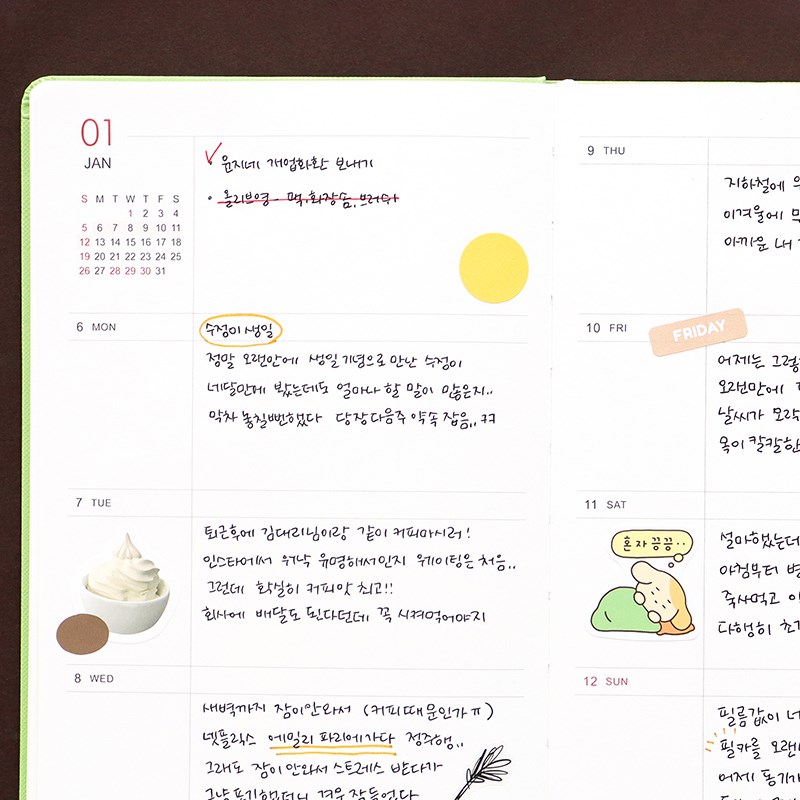 01
JAN
S M T W T F S
1 2 3 4
5 6 7 8 9 10 11
12 13 14 15 16 17 18
19 20 21 22 23 24 25
26 27 28 29 30 31
윤지네 개업화환 보내기
올리브영 - 팩, 화장솜, 브러쉬
6 MON
수정이 생일
정말 오랜만에 생일기념으로 만난 수정이
네달만에 봤는데도 얼마나 할 말이 많은지..
막차 놓칠뻔했다 당장 다음주 약속 잡음.. ㅋㅋ
7 TUE
퇴근후에 김대리님이랑 같이 커피마시러!
인스타에서 워낙 유명해서인지 웨이팅은 처음..
그런데 확실히 커피맛 최고!!
회사에 배달도 된다던데 꼭 시켜먹어야지
8 WED
새벽까지 잠이안와서 (커피때문인가ㅠ)
넷플릭스 에밀리 파리에가다 정주행..
그래도 잠이안와서 스트레스 받다가
겨우 잠들었다
9 THU
지하철에
이겨울에
아까운 내
10 FRI
FRIDAY
어제는 그렇
오랜만에
날씨가 모락
목이 칼칼한
11 SAT
혼자 끙끙..
설마했는데
아침부터 병
죽사먹고
다행히 초기
12 SUN
필름값이 너
필카를 오랜
어제 동기가